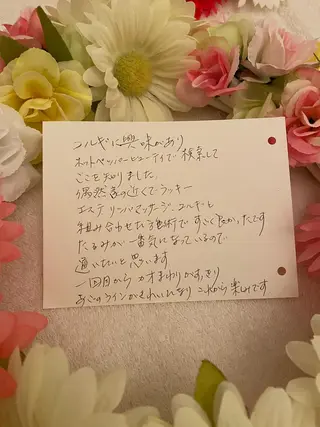 コルギに興味があり
ホットペッパービューティで検索して
ここを知りました。
偶然家の近くでラッキー
エステ リンパマッサージ コルギと
組み合わせた施術ですごく良かったです
たるみが一番気になっているので
通いたいと思います
一回目から カオまわりがすっきり
あごのラインがきれいになり これから楽しみです